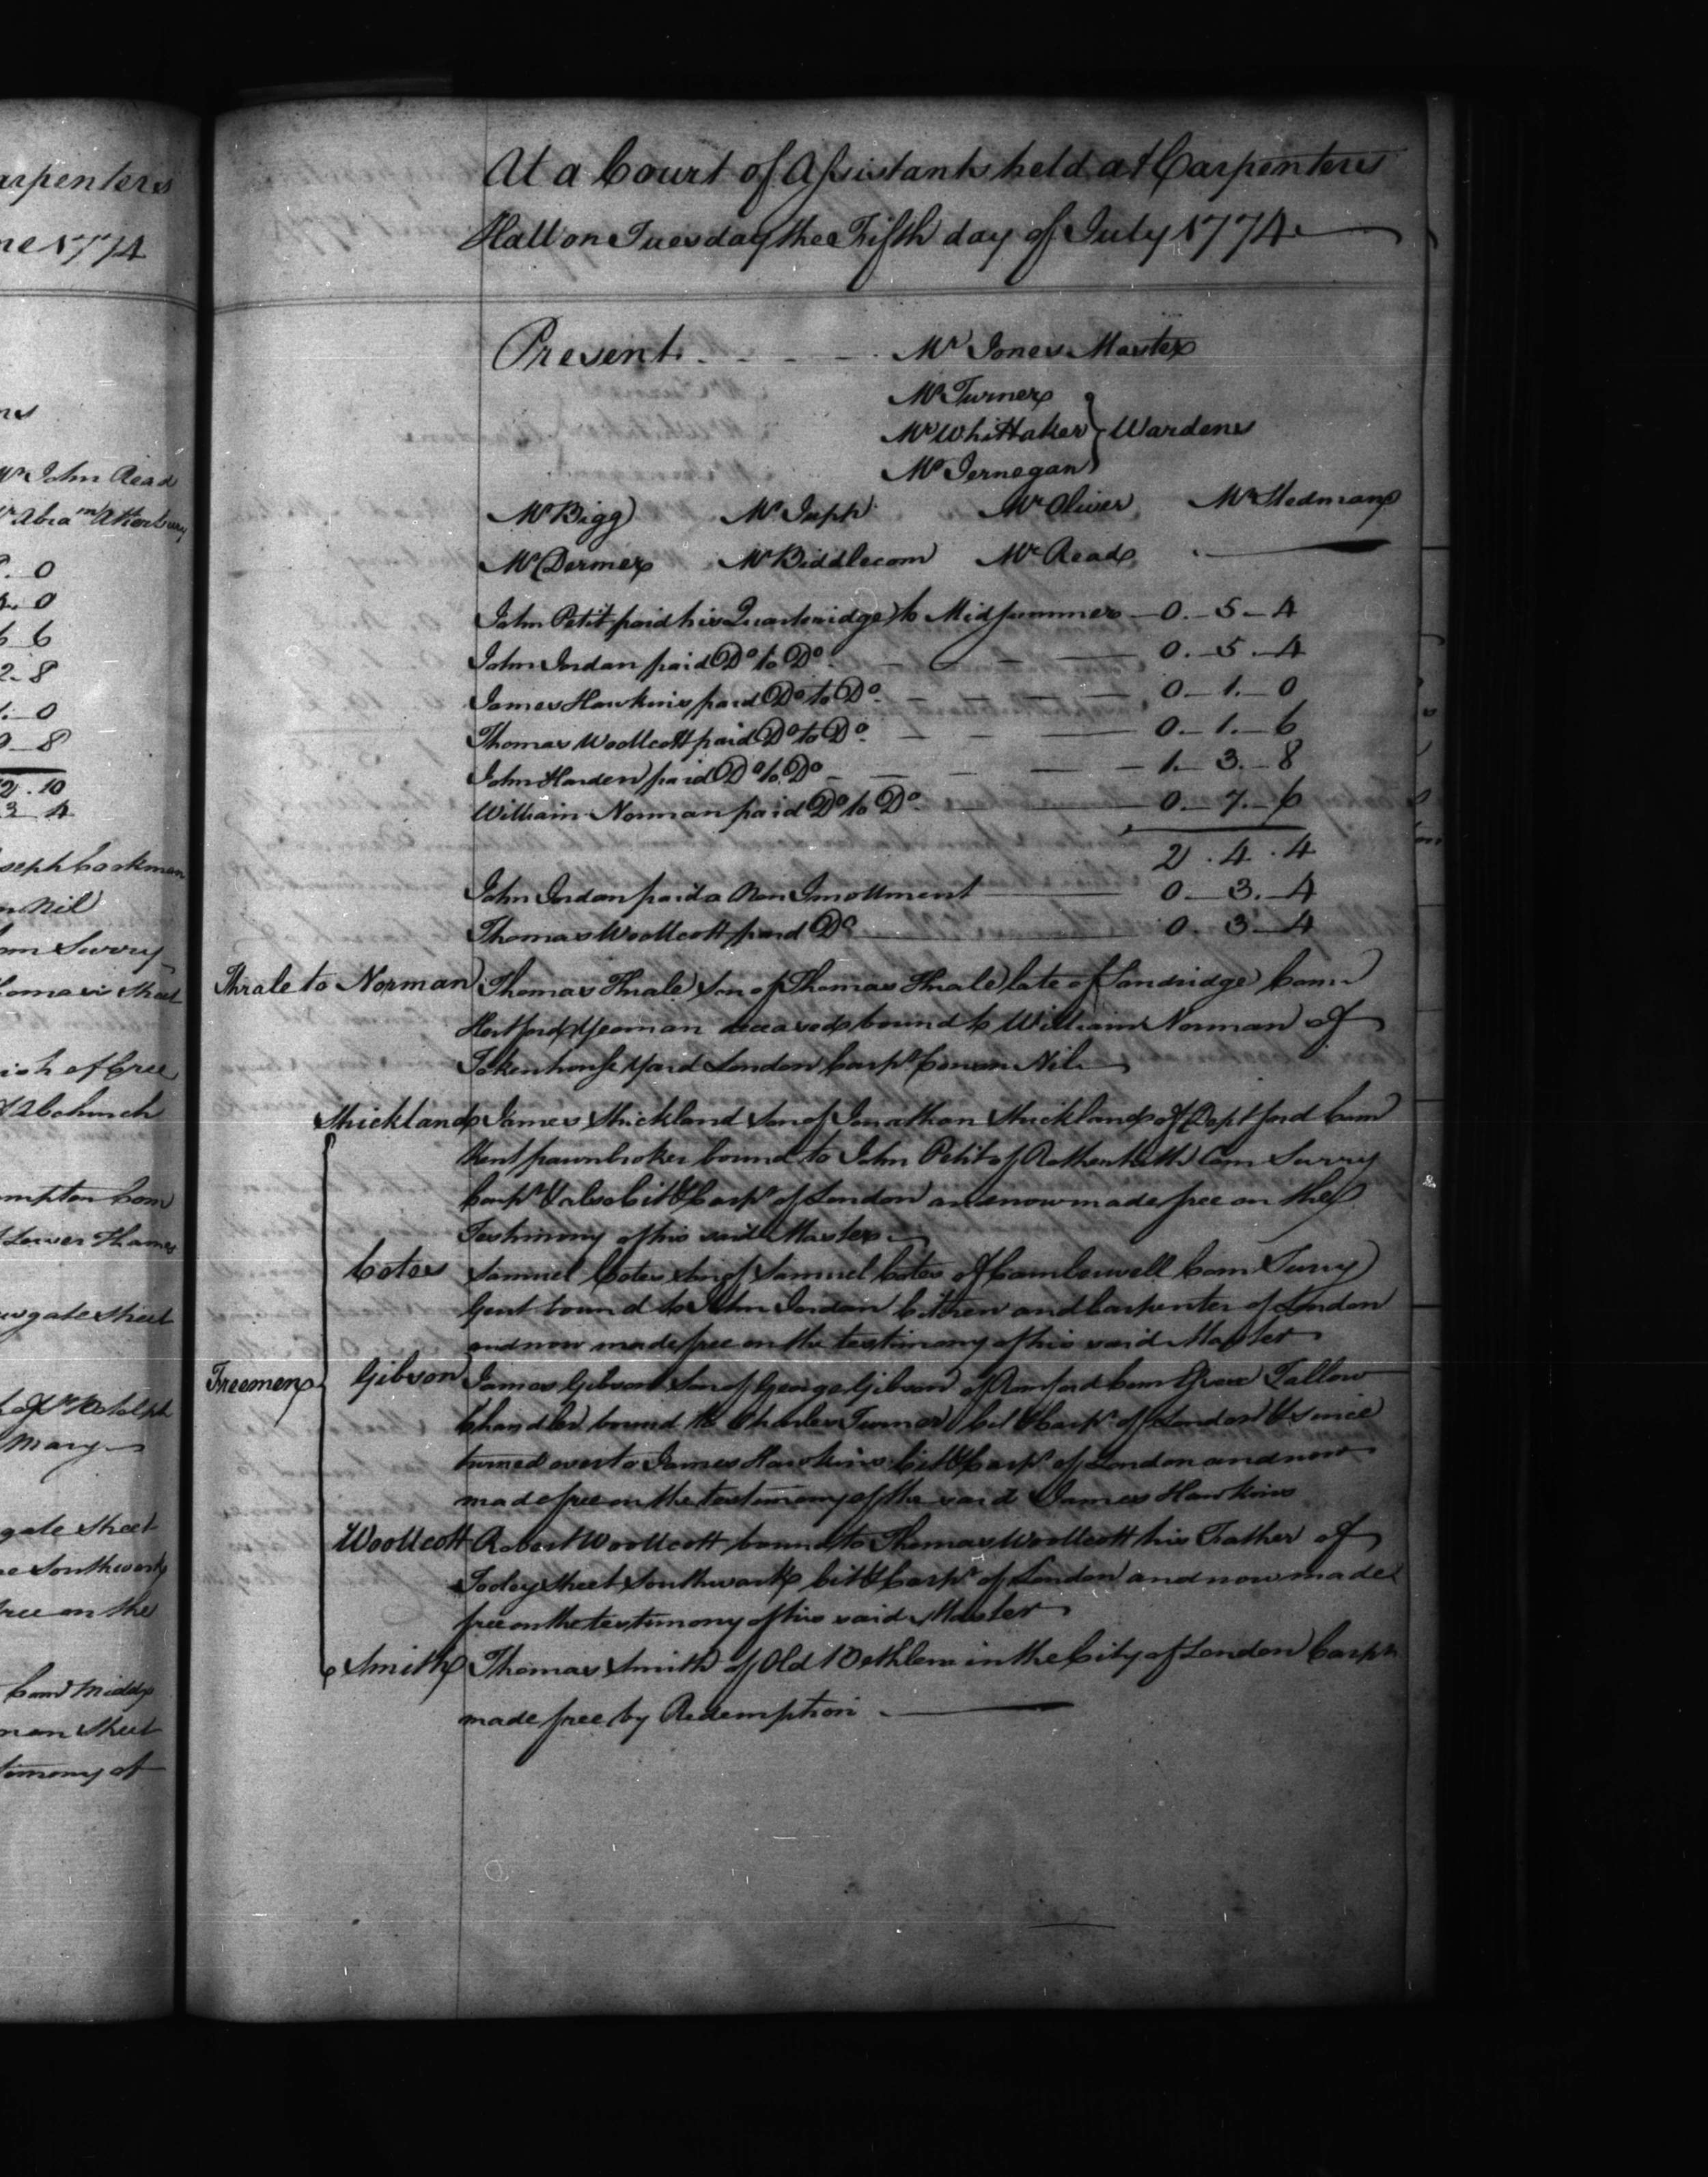 arpenters
ne 1774
ns
Mr John Read
Mr Abram Atterbury
0
0
6 6
2 8
1 0
0 8
12 . 10
3 4
seph Corkman
n Nil
om Surry
Thomas's Street
ish of Cree
St Abchurch
mpton Com
Lower Thames
ewgate Street
of St Botolph
Mary
gate Street
Southwark
free on the
Com Middx
man Street
timony of
At a Court of Assistants held at Carpenters
Hall on Tuesday the Fifth day of July 1774
Present. - - - Mr Jones Master
Mr Turner
Mr Whittaker } Wardens
Mr Jernegan
Mr Bigg Mr Jupp Mr Oliver Mr Stedman
Mr Dermer Mr Biddlecom Mr Read
John Petit paid his Quarteridge to Midsummer 0 . 5 . 4
John Jordan paid Do to Do 0 . 5 . 4
James Hawkins paid Do to Do 0 . 1 . 0
Thomas Woollcott paid Do to Do 0 . 1 . 6
John Harden paid Do to Do 1 . 3 . 8
William Norman paid Do to Do 0 . 7 . 6
2 . 4 . 4
John Jordan paid a Non Inrollment 0 . 3 . 4
Thomas Woollcott paid Do 0 . 3 . 4
Thrale to Norman Thomas Thrale Son of Thomas Thrale late of Sandridge Com
Hertford Yeoman deceased bound to William Norman of
Tokenhouse Yard London Carpr Conson Nil
Strickland James Strickland Son of Jonathan Strickland of Deptford Com
Kent pawnbroker bound to John Petit of Rotherhith Com Surry
Carpr & also Cit & Carpr of London and now made free on the
Testimony of his said Master
Cotes Samuel Cotes Son of Samuel Cotes of Camberwell Com Surry
Gent bound to John Jordan Citizen and Carpenter of London
and now made free on the testimony of his said Master
Freemen Gibson James Gibson Son of George Gibson of Romford Com Essex Tallow
Chandler bound to Charles Turner Cit & Carpr of London & since
turned over to James Hawkins Cit & Carpr of London and now
made free on the testimony of the said James Hawkins
Woollcott Robert Woollcott bound to Thomas Woollcott his Father of
Tooley Street Southwark Cit & Carpr of London and now made
free on the testimony of his said Master
Smith Thomas Smith of Old Bethlem in the City of London Carpr
made free by Redemption